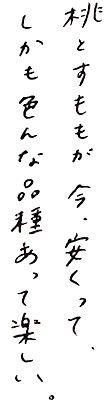 桃とすももが今、安くって、
しかも色んな品種あって楽しい。